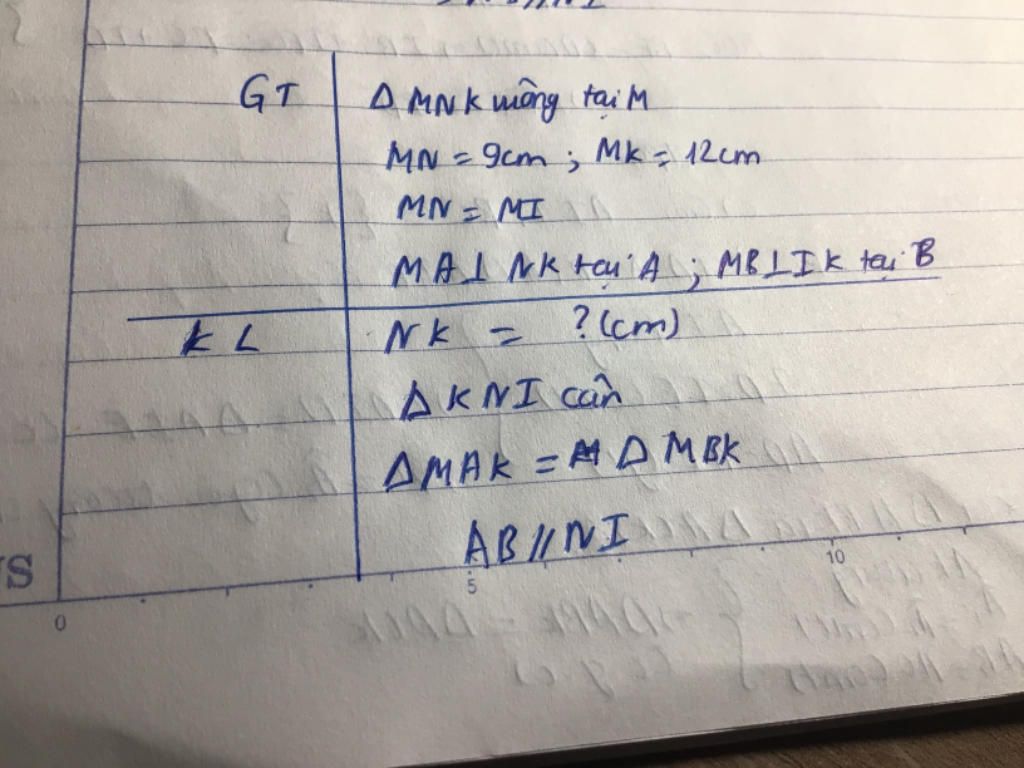 GT Δ MNK vuông tại M
MN = 9cm ; MK = 12cm
MN = MI
MA ⊥ NK tại A ; MB ⊥ IK tại B
KL NK = ? (cm)
Δ KNI cân
Δ MAK = Δ MBK
AB // NI
0 5 10